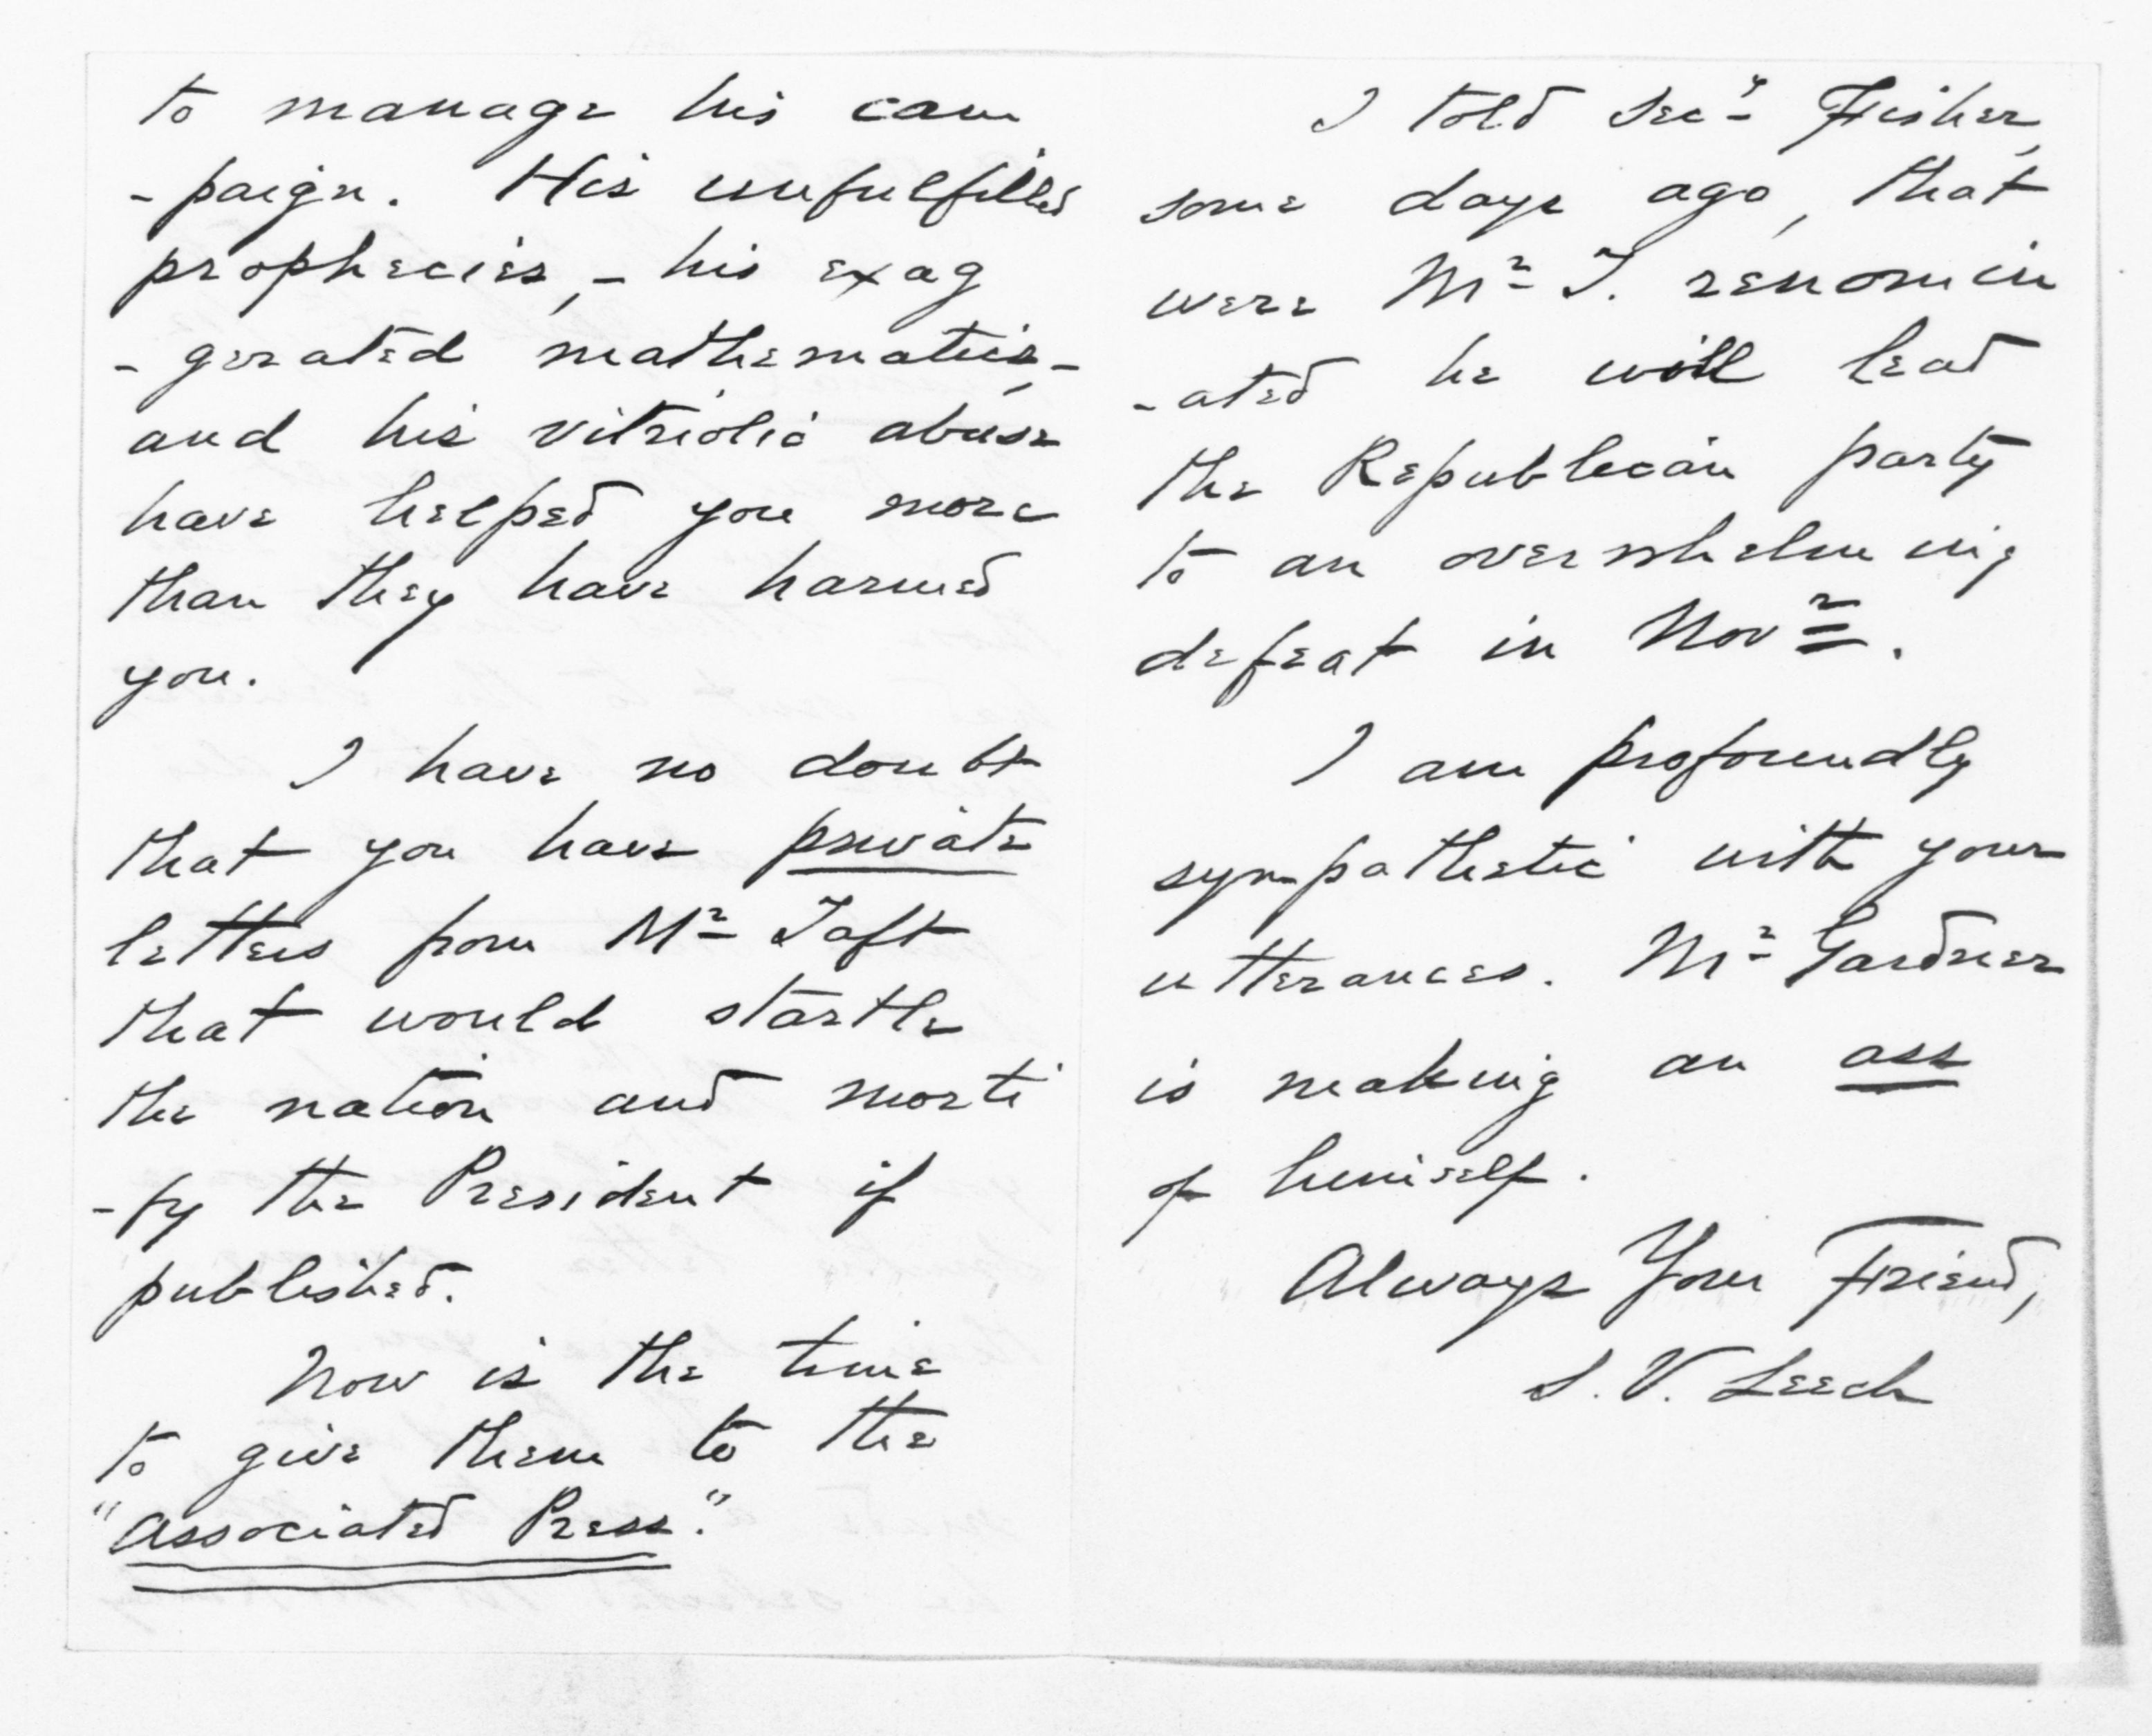 to manage his cam
-paign. His unfulfilled
prophecies, - his exag
-gerated mathematics, -
and his vitriolic abuse
have helped you more
than they have harmed
you.
I have no doubt
that you have private
letters from Mr Taft
that would startle
the nation and morti
-fy the President if
published.
Now is the time
to give them to the
"Associated Press."
I told Secy Fisher,
some days ago, that
were Mr T. renomin
-ated he will lead
the Republican party
to an overwhelming
defeat in Novr.
I am profoundly
sympathetic with your
utterances. Mr Gardner
is making an ass
of himself.
Always Your Friend,
S. V. Leech